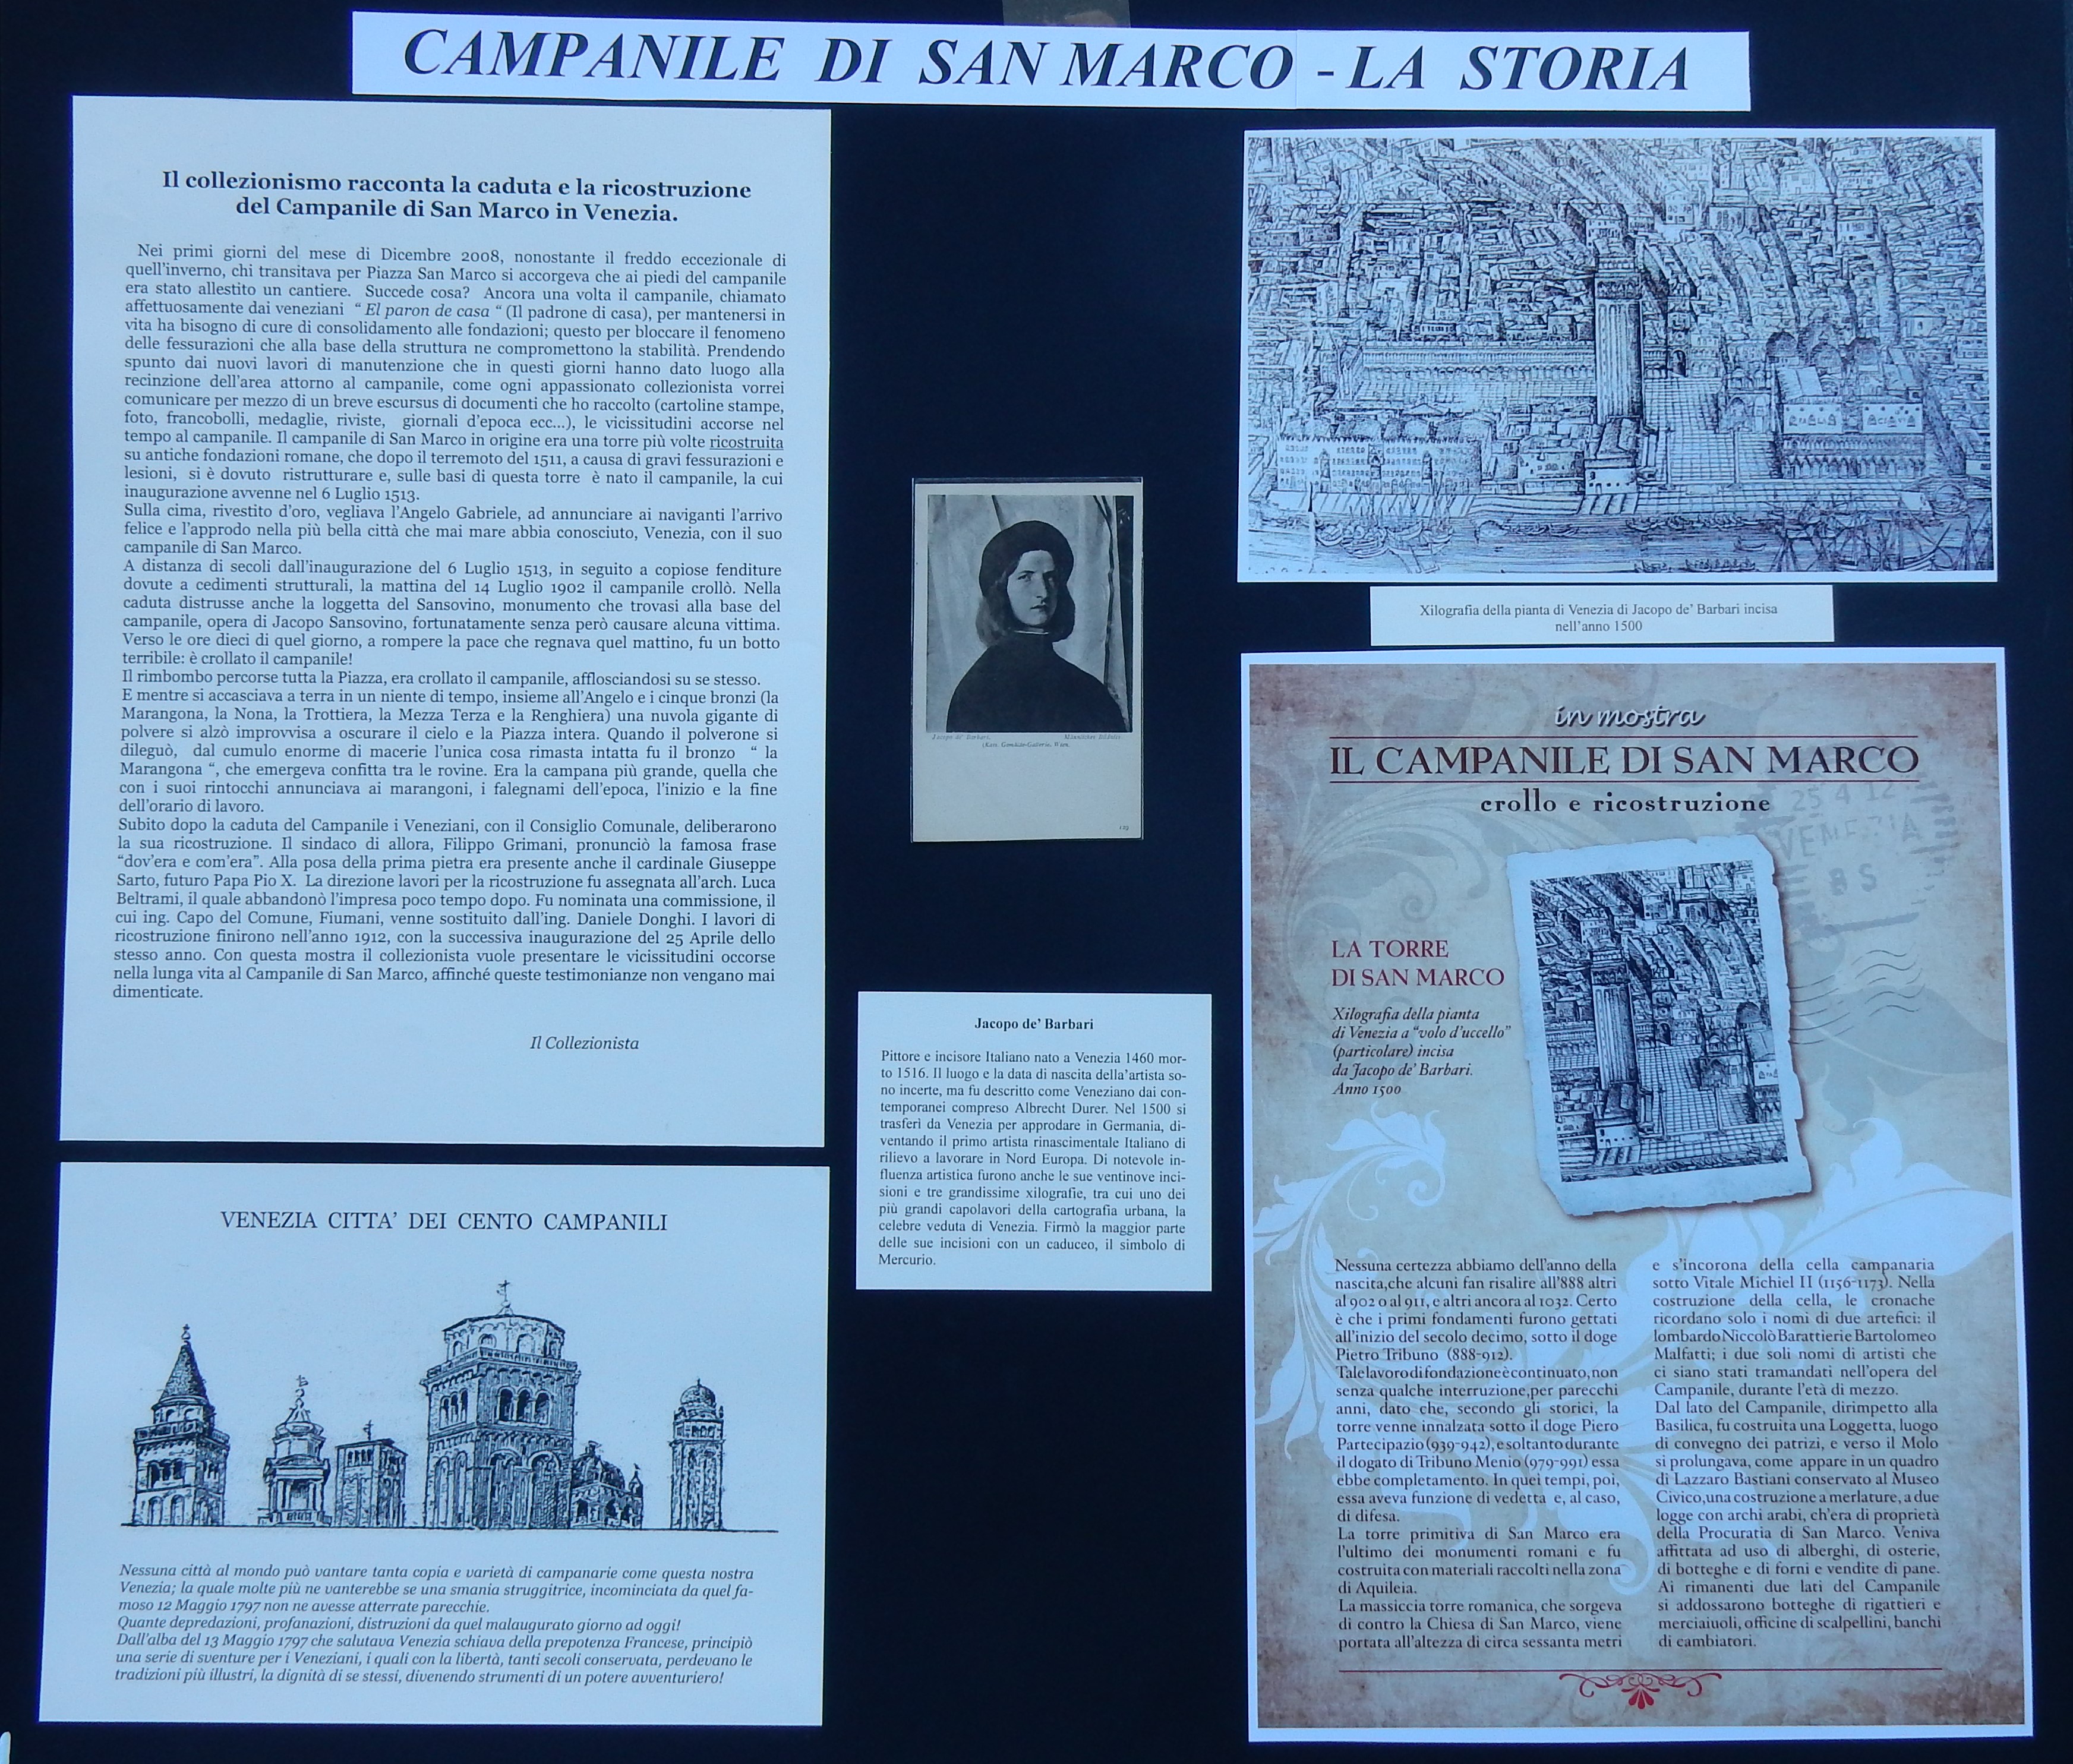 CAMPANILE DI SAN MARCO - LA STORIA
Il collezionismo racconta la caduta e la ricostruzione
del Campanile di San Marco in Venezia.
Nei primi giorni del mese di Dicembre 2008, nonostante il freddo eccezionale di
quell'inverno, chi transitava per Piazza San Marco si accorgeva che ai piedi del campanile
era stato allestito un cantiere. Succede cosa? Ancora una volta il campanile, chiamato
affettuosamente dai veneziani “ El paron de casa “ (Il padrone di casa), per mantenersi in
vita ha bisogno di cure di consolidamento alle fondazioni; questo per bloccare il fenomeno
delle fessurazioni che alla base della struttura ne compromettono la stabilità. Prendendo
spunto dai nuovi lavori di manutenzione che in questi giorni hanno dato luogo alla
recinzione dell'area attorno al campanile, come ogni appassionato collezionista vorrei
comunicare per mezzo di un breve escursus di documenti che ho raccolto (cartoline stampe,
foto, francobolli, medaglie, riviste, giornali d'epoca ecc...), le vicissitudini accorse nel
tempo al campanile. Il campanile di San Marco in origine era una torre più volte ricostruita
su antiche fondazioni romane, che dopo il terremoto del 1511, a causa di gravi fessurazioni e
lesioni, si è dovuto ristrutturare e, sulle basi di questa torre è nato il campanile, la cui
inaugurazione avvenne nel 6 Luglio 1513.
Sulla cima, rivestito d'oro, vegliava l'Angelo Gabriele, ad annunciare ai naviganti l'arrivo
felice e l'approdo nella più bella città che mai mare abbia conosciuto, Venezia, con il suo
campanile di San Marco.
A distanza di secoli dall'inaugurazione del 6 Luglio 1513, in seguito a copiose fenditure
dovute a cedimenti strutturali, la mattina del 14 Luglio 1902 il campanile crollò. Nella
caduta distrusse anche la loggetta del Sansovino, monumento che trovasi alla base del
campanile, opera di Jacopo Sansovino, fortunatamente senza però causare alcuna vittima.
Verso le ore dieci di quel giorno, a rompere la pace che regnava quel mattino, fu un botto
terribile: è crollato il campanile!
Il rimbombo percorse tutta la Piazza, era crollato il campanile, afflosciandosi su se stesso.
E mentre si accasciava a terra in un niente di tempo, insieme all'Angelo e i cinque bronzi (la
Marangona, la Nona, la Trottiera, la Mezza Terza e la Renghiera) una nuvola gigante di
polvere si alzò improvvisa a oscurare il cielo e la Piazza intera. Quando il polverone si
dileguò, dal cumulo enorme di macerie l'unica cosa rimasta intatta fu il bronzo “ la
Marangona “, che emergeva confitta tra le rovine. Era la campana più grande, quella che
con i suoi rintocchi annunciava ai marangoni, i falegnami dell'epoca, l'inizio e la fine
dell'orario di lavoro.
Subito dopo la caduta del Campanile i Veneziani, con il Consiglio Comunale, deliberarono
la sua ricostruzione. Il sindaco di allora, Filippo Grimani, pronunciò la famosa frase
“dov'era e com'era”. Alla posa della prima pietra era presente anche il cardinale Giuseppe
Sarto, futuro Papa Pio X. La direzione lavori per la ricostruzione fu assegnata all'arch. Luca
Beltrami, il quale abbandonò l'impresa poco tempo dopo. Fu nominata una commissione, il
cui ing. Capo del Comune, Fiumani, venne sostituito dall'ing. Daniele Donghi. I lavori di
ricostruzione finirono nell'anno 1912, con la successiva inaugurazione del 25 Aprile dello
stesso anno. Con questa mostra il collezionista vuole presentare le vicissitudini occorse
nella lunga vita al Campanile di San Marco, affinché queste testimonianze non vengano mai
dimenticate.
Il Collezionista
VENEZIA CITTA' DEI CENTO CAMPANILI
Nessuna città al mondo può vantare tanta copia e varietà di campanarie come questa nostra
Venezia; la quale molte più ne vanterebbe se una smania struggitrice, incominciata da quel fa-
moso 12 Maggio 1797 non ne avesse atterrate parecchie.
Quante depredazioni, profanazioni, distruzioni da quel malaugurato giorno ad oggi!
Dall'alba del 13 Maggio 1797 che salutava Venezia schiava della prepotenza Francese, principiò
una serie di sventure per i Veneziani, i quali con la libertà, tanti secoli conservata, perdevano le
tradizioni più illustri, la dignità di se stessi, divenendo strumenti di un potere avventuriero!
Jacopo de' Barbari. Männliches Bildnis.
(Kais. Gemälde-Galerie, Wien.
129
Jacopo de' Barbari
Pittore e incisore Italiano nato a Venezia 1460 mor-
to 1516. Il luogo e la data di nascita della'artista so-
no incerte, ma fu descritto come Veneziano dai con-
temporanei compreso Albrecht Durer. Nel 1500 si
trasferì da Venezia per approdare in Germania, di-
ventando il primo artista rinascimentale Italiano di
rilievo a lavorare in Nord Europa. Di notevole in-
fluenza artistica furono anche le sue ventinove inci-
sioni e tre grandissime xilografie, tra cui uno dei
più grandi capolavori della cartografia urbana, la
celebre veduta di Venezia. Firmò la maggior parte
delle sue incisioni con un caduceo, il simbolo di
Mercurio.
Xilografia della pianta di Venezia di Jacopo de' Barbari incisa
nell'anno 1500
in mostra
IL CAMPANILE DI SAN MARCO
crollo e ricostruzione
25 4 12
VENEZIA
8 S
LA TORRE
DI SAN MARCO
Xilografia della pianta
di Venezia a “volo d'uccello”
(particolare) incisa
da Jacopo de' Barbari.
Anno 1500
Nessuna certezza abbiamo dell'anno della
nascita,che alcuni fan risalire all'888 altri
al 902 o al 911, e altri ancora al 1032. Certo
è che i primi fondamenti furono gettati
all'inizio del secolo decimo, sotto il doge
Pietro Tribuno (888-912).
Tale lavoro di fondazione è continuato, non
senza qualche interruzione,per parecchi
anni, dato che, secondo gli storici, la
torre venne innalzata sotto il doge Piero
Partecipazio (939-942), e soltanto durante
il dogato di Tribuno Menio (979-991) essa
ebbe completamento. In quei tempi, poi,
essa aveva funzione di vedetta e, al caso,
di difesa.
La torre primitiva di San Marco era
l'ultimo dei monumenti romani e fu
costruita con materiali raccolti nella zona
di Aquileia.
La massiccia torre romanica, che sorgeva
di contro la Chiesa di San Marco, viene
portata all'altezza di circa sessanta metri
e s'incorona della cella campanaria
sotto Vitale Michiel II (1156-1173). Nella
costruzione della cella, le cronache
ricordano solo i nomi di due artefici: il
lombardo Niccolò Barattieri e Bartolomeo
Malfatti; i due soli nomi di artisti che
ci siano stati tramandati nell'opera del
Campanile, durante l'età di mezzo.
Dal lato del Campanile, dirimpetto alla
Basilica, fu costruita una Loggetta, luogo
di convegno dei patrizi, e verso il Molo
si prolungava, come appare in un quadro
di Lazzaro Bastiani conservato al Museo
Civico,una costruzione a merlature, a due
logge con archi arabi, ch'era di proprietà
della Procuratia di San Marco. Veniva
affittata ad uso di alberghi, di osterie,
di botteghe e di forni e vendite di pane.
Ai rimanenti due lati del Campanile
si addossarono botteghe di rigattieri e
merciaiuoli, officine di scalpellini, banchi
di cambiatori.